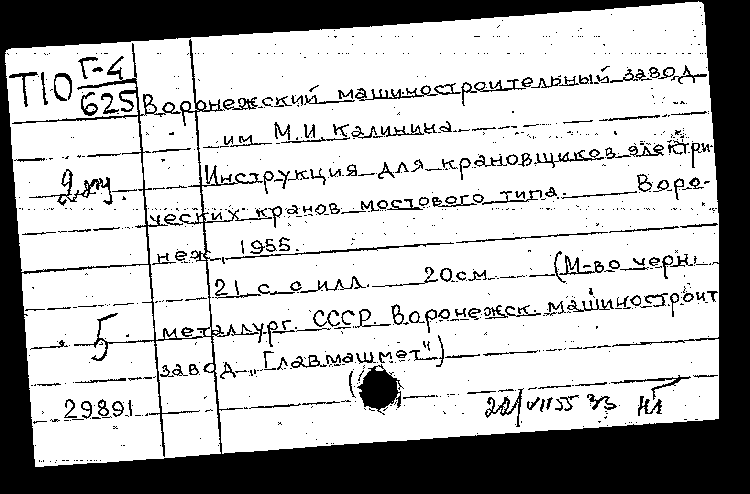 Т10 Г-4
625
Воронежский машиностроительный завод
им М.И. Калинина.
Инструкция для крановщиков электри-
ческих кранов мостового типа. Воро-
неж, 1955.
21 с. с илл. 20см (М-во черн.
металлург. СССР. Воронежск. машиностроит
завод „Главмашмет")
5
29891